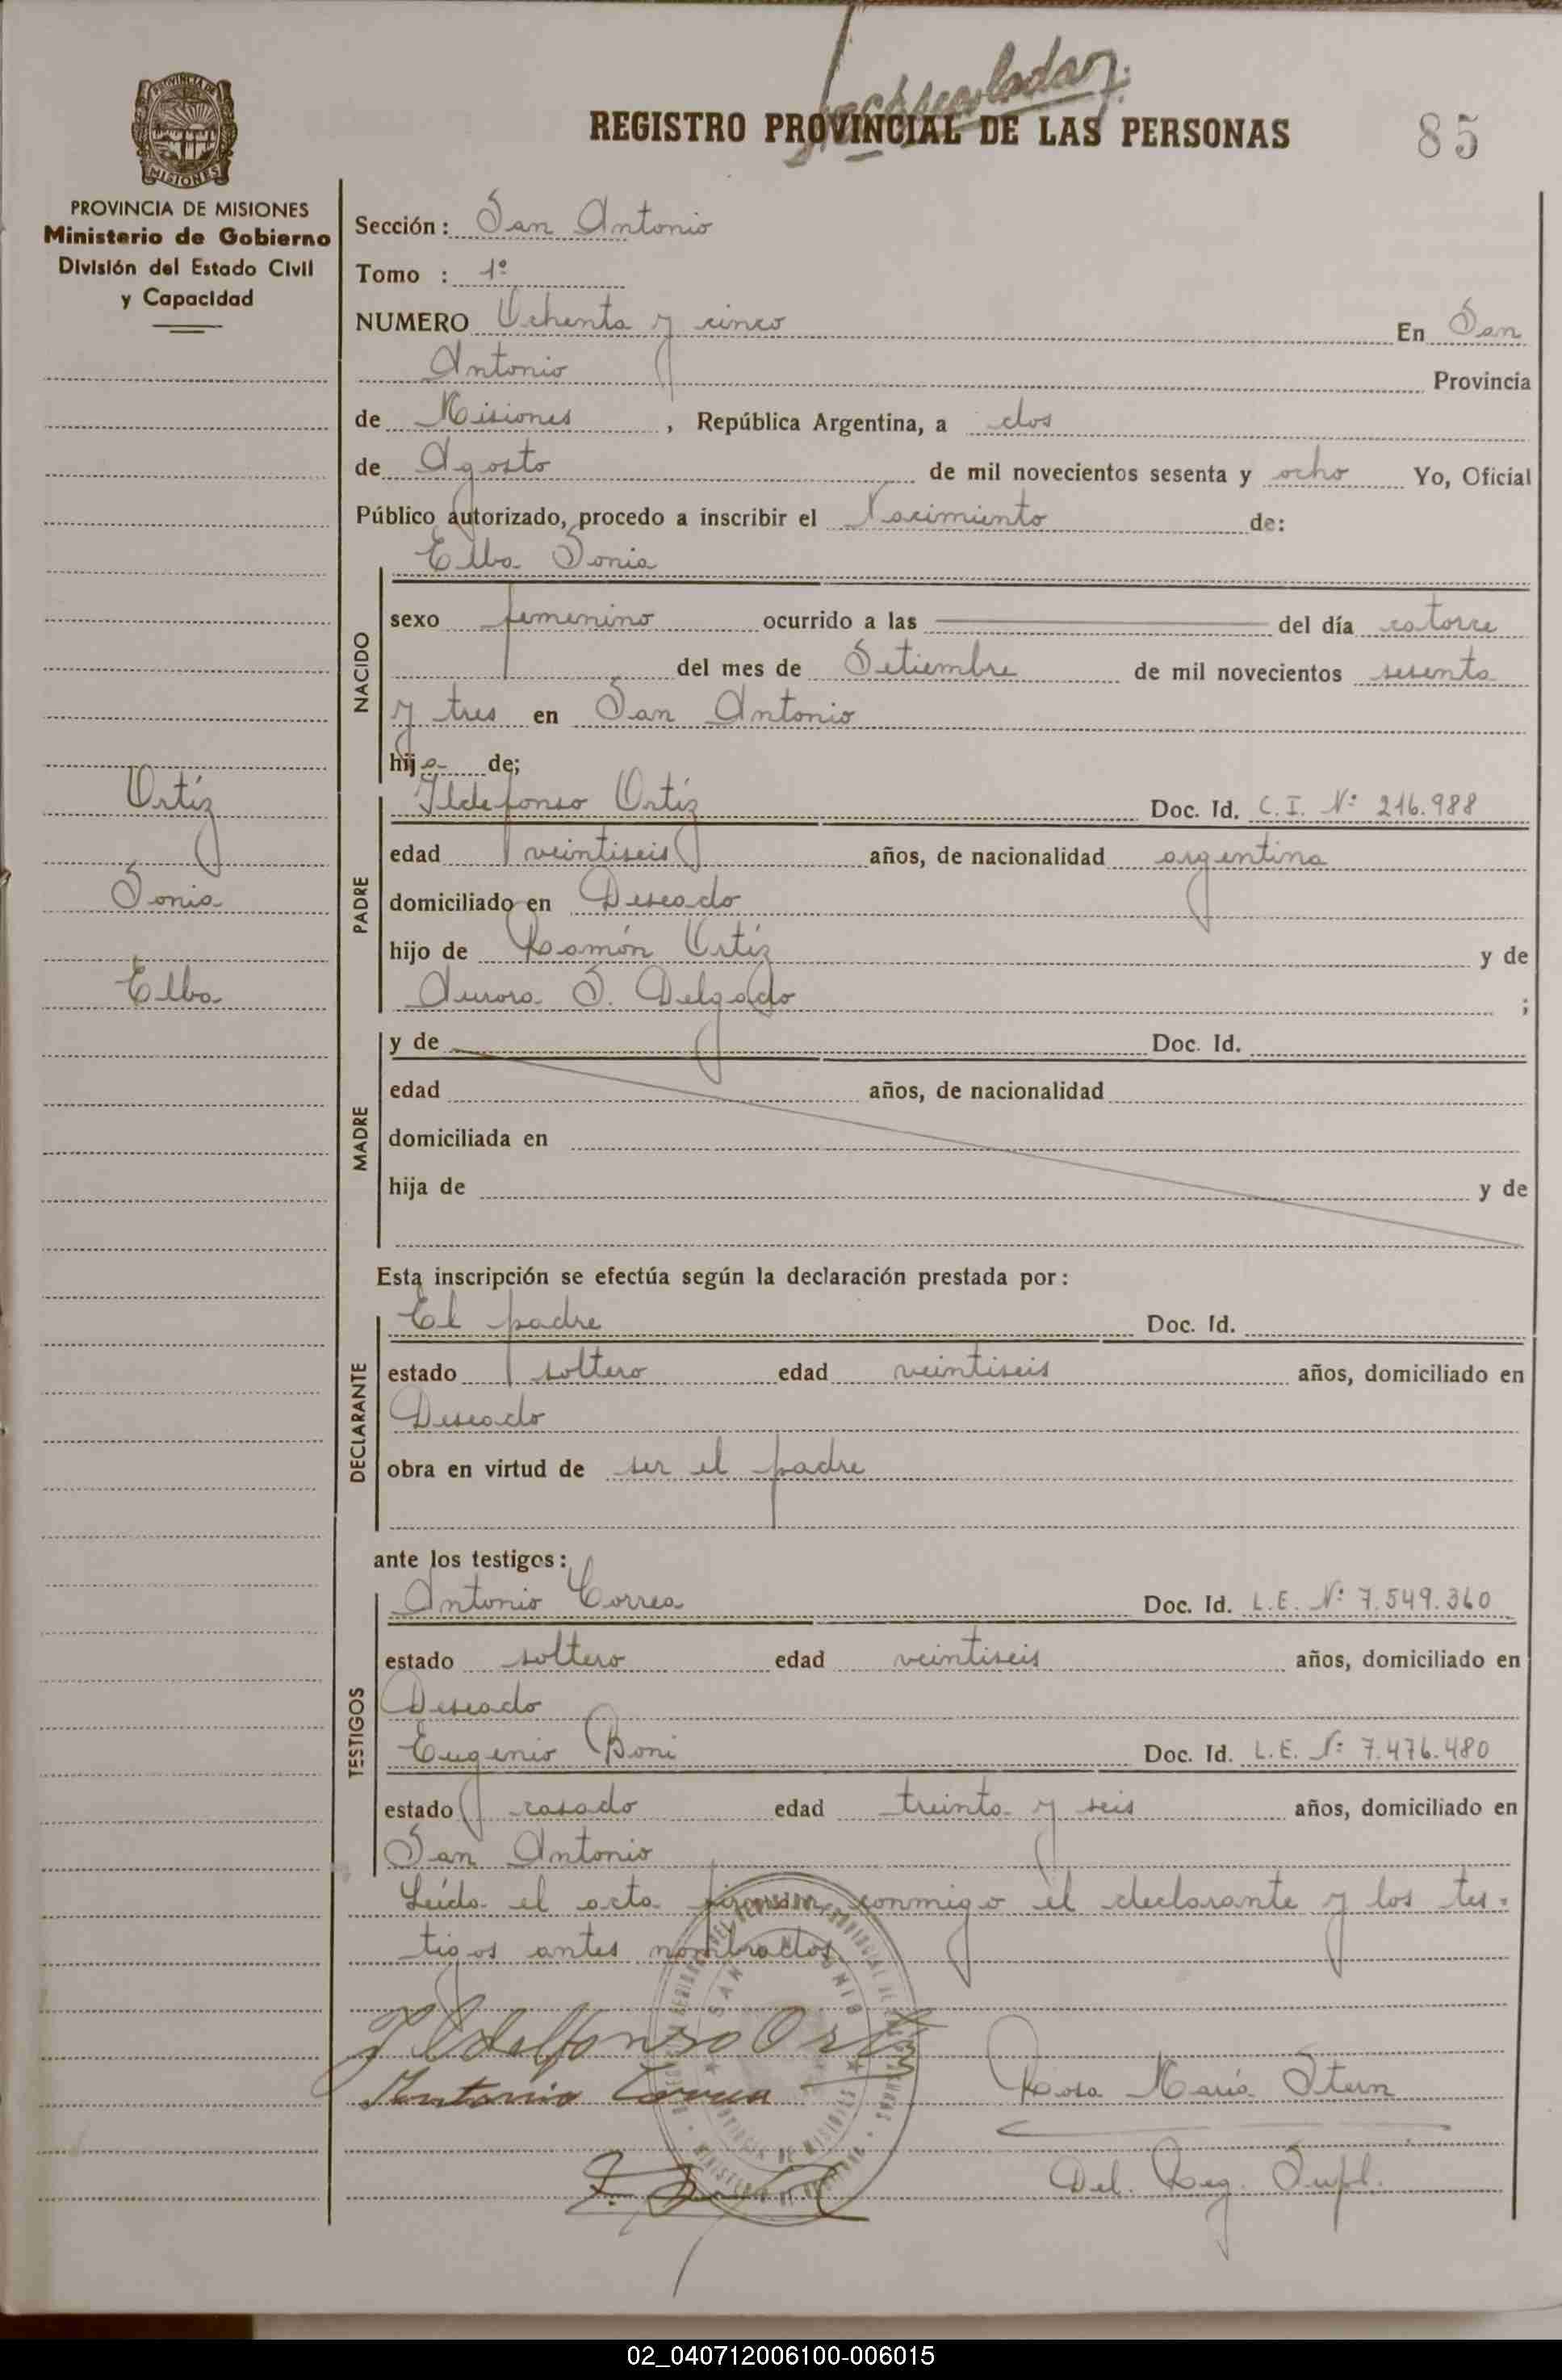 REGISTRO PROVINCIAL DE LAS PERSONAS
85
PROVINCIA DE MISIONES
Ministerio de Gobierno
División del Estado Civil
y Capacidad
Sección: San Antonio
Tomo : 1º
NUMERO Ochenta y cinco En San
Antonio Provincia
de Misiones, República Argentina, a dos
de Agosto de mil novecientos sesenta y ocho Yo, Oficial
Público autorizado, procedo a inscribir el Nacimiento de:
Elba Sonia
NACIDO
sexo femenino ocurrido a las del día catorce
del mes de Setiembre de mil novecientos sesenta
y tres en San Antonio
hija de;
Ortíz
Sonia
Elba
PADRE
Ildefonso Ortíz Doc. Id. C.I. Nº 216.988
edad veintiseis años, de nacionalidad argentina
domiciliado en Deseado
hijo de Ramón Ortíz y de
Aurora S. Delgado ;
MADRE
y de Doc. Id.
edad años, de nacionalidad
domiciliada en
hija de y de
Esta inscripción se efectúa según la declaración prestada por:
DECLARANTE
El padre Doc. Id.
estado soltero edad veintiseis años, domiciliado en
Deseado
obra en virtud de ser el padre
ante los testigos:
TESTIGOS
Antonio Correa Doc. Id. L.E. Nº 7.549.360
estado soltero edad veintiseis años, domiciliado en
Deseado
Eugenio Boni Doc. Id. L.E. Nº 7.476.480
estado casado edad treinta y seis años, domiciliado en
San Antonio
Leída el acta firman conmigo el declarante y los tes-
tigos antes nombrados
Ildelfonso Ortiz
Antonio Correa
Rosa María Stern
Del. Reg. Supl.
02_040712006100-006015